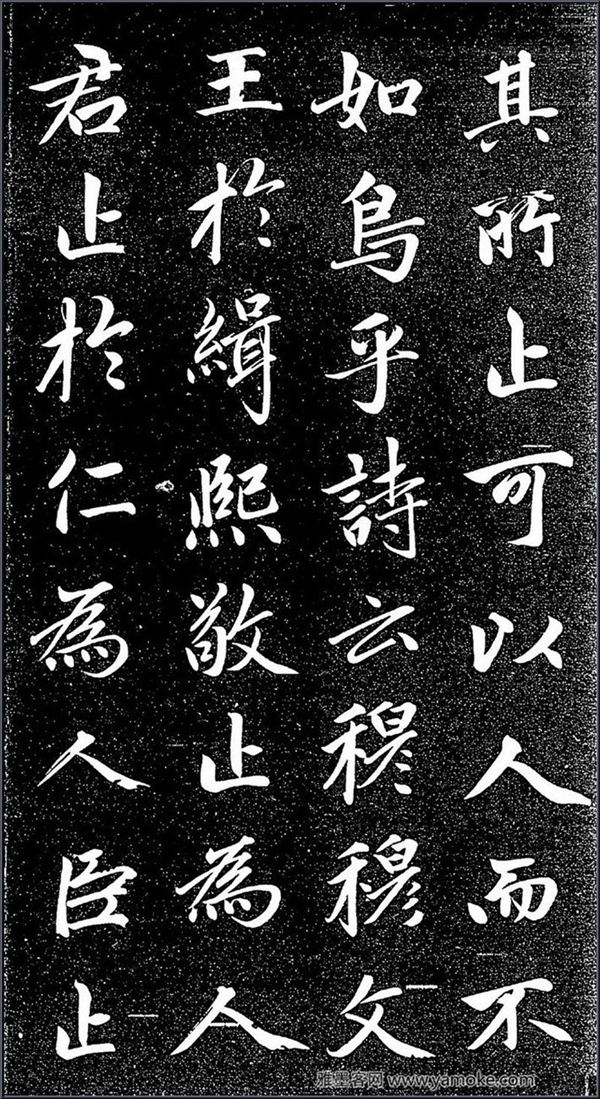 其所止可以人而不
如鳥乎詩云穆穆文
王於緝熙敬止為人
君止於仁為人臣止
雅墨客网 www.yamoke.com